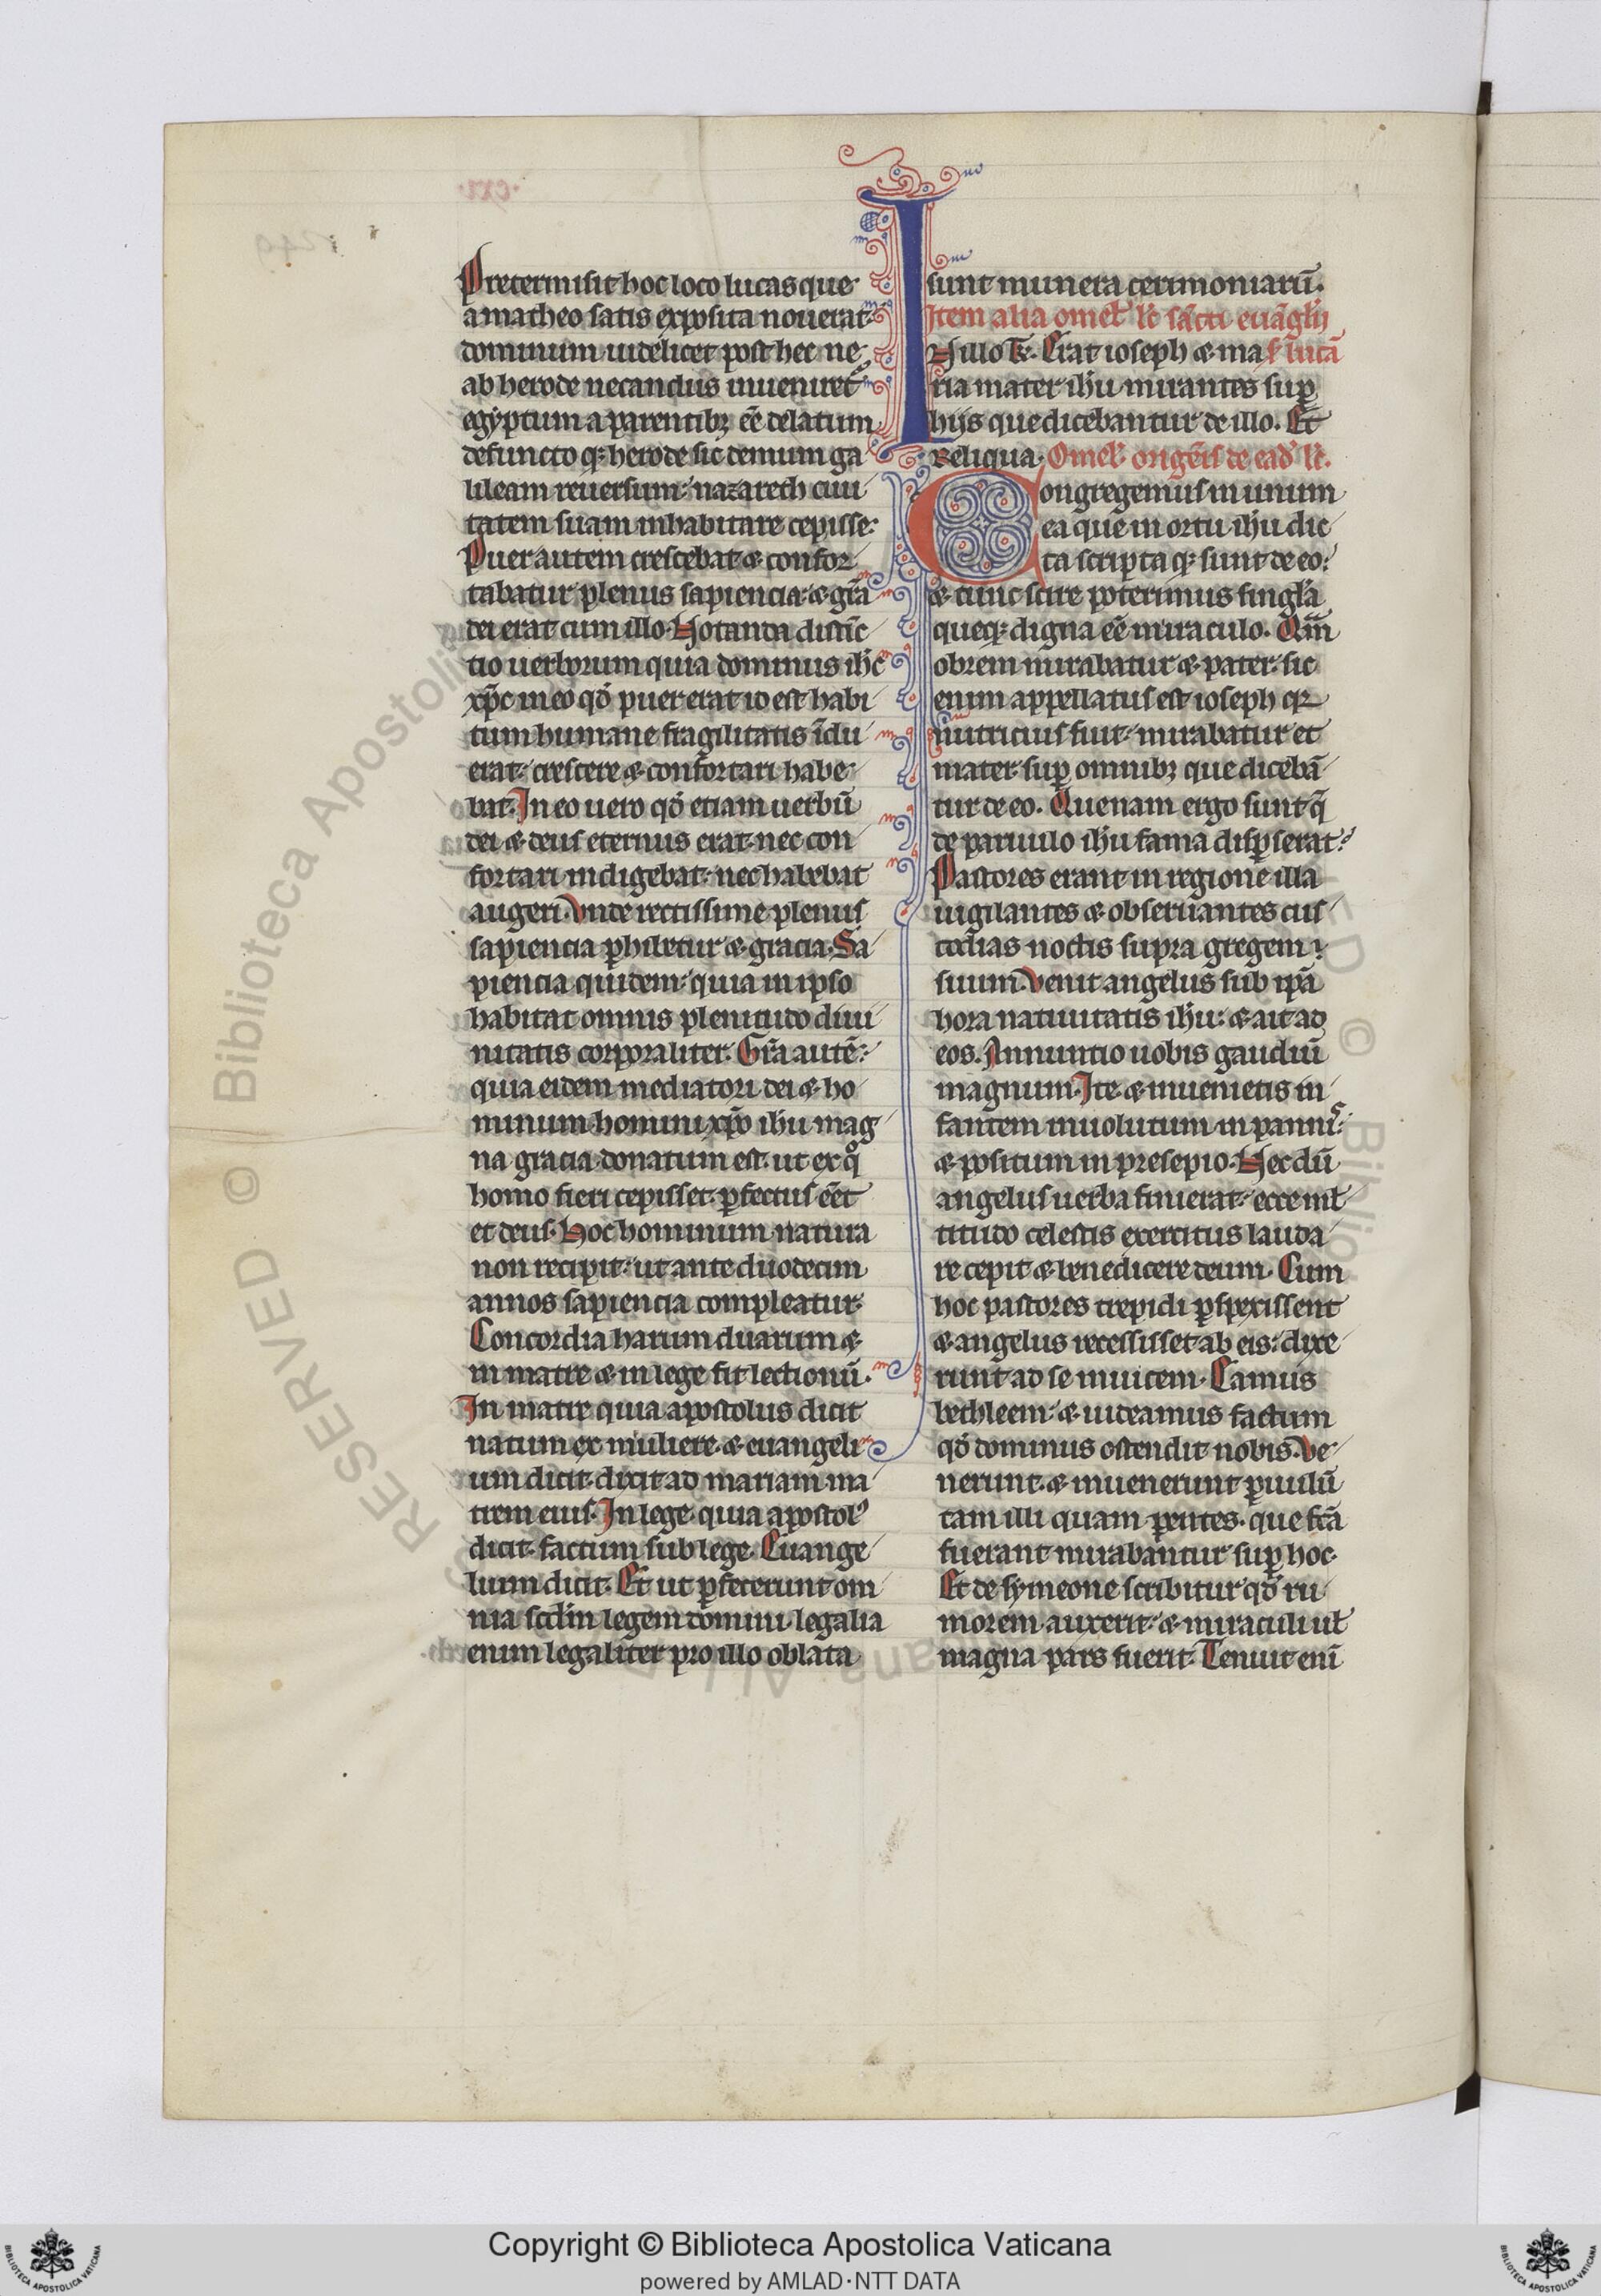 Pretermisit hoc loco lucas que
a matheo satis exposita nouerat.
dominum uidelicet post hec ne
ab herode necandus inueniretᷣ
egyptum a parentibꝫ eē delatum
defuncto qꝫ herode sic demum ga
lileam reuersum: nazareth ciui
tatem suam inhabitare cepisse:
Puer autem crescebat & confor
tabatur plenus sapiencia: & grā
dei erat cum illo. Notanda distīc
tio uerborum quia dominus ihc̄
xp̄c in eo qđ puer erat id est habi
tum humane fragilitatis īdu
erat: crescere & confortari habe
bat. In eo uero qđ etiam uerbū
dei & deus eternus erat. nec con
fortari indigebat. nec habebat
augeri. Vnde rectissime plenus
sapiencia ꝑhibetur & gracia. Sa
piencia quidem: quia in ipso
habitat omnis plenitudo diui
nitatis corporaliter. Grā autē:
quia eidem mediatori dei & ho
minum homini xp̄o ihu mag
na gracia donatum est. ut ex qͦ
homo fieri cepisset. ꝑfectus eēt
et deus. Hoc hominum natura
non recipit: ut ante duodecim
annos sapiencia compleatur.
Concordia harum duarum &
in matre & in lege fit lectionū.
In matre quia apostolus dicit
natum ex muliere. & euangeli
um dicit. dixit ad mariam ma
trem eius. In lege. quia apostolꝰ
dicit. factum sub lege. Euange
lium dicit. Et ut ꝑfecerunt om
nia scdm legem domini. legalia
enim legaliter pro illo oblata
sunt munera cerimoniarū.
Item alia omel' lc̄ sācti euāglij
N illo t̄. Erat ioseph & ma s' lucā
ria mater ihu mirantes suꝑ
hijs que dicebantur de illo. Et
Reliqua. Omel' origēis de eađ lc̄.
Congregemus in unum
ea que in ortu ihu dic
ta scripta qꝫ sunt de eo:
& tunc scire poterimus singl'a
queqꝫ digna eē miraculo. Qm̄
obrem mirabatur & pater. sic
enim appellatus est ioseph qꝛ
nutricius fuit. mirabatur et
mater suꝑ omnibꝫ que dicebā
tur de eo. Quenam ergo sunt q̄
de paruulo ihu fama disꝑserat?
Pastores erant in regione illa
uigilantes & obseruantes cus
todias noctis supra gregem
suum. Venit angelus sub ipā
hora natiuitatis ihu: & ait ad
eos. Annuntio uobis gaudiū
magnum. Ite & inuenietis in
fantem inuolutum in pannis:
& positum in presepio. Hec dū
angelus uerba finierat: ecce ml'
titudo celestis exercitus lauda
re cepit & benedicere deum. Cum
hoc pastores trepidi ꝑspexissent
& angelus recessisset ab eis: dixe
runt ad se inuicem. Eamus
bethleem: & uideamus factum
qđ dominus ostendit nobis. Ve
nerunt. & inuenerunt ꝑuulū
tam illi quam ꝑentes. que fcā
fuerant mirabantur suꝑ hoc.
Et de symeone scribitur qđ ru
morem auxerit: & miraculi ul'
magna pars fuerit. Tenuit enī
Copyright © Biblioteca Apostolica Vaticana
powered by AMLAD·NTT DATA